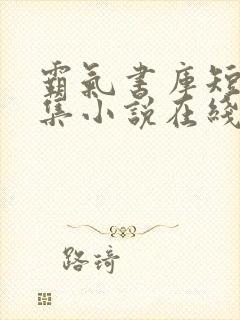 霸氣書庫短
集小說在綫
路琦